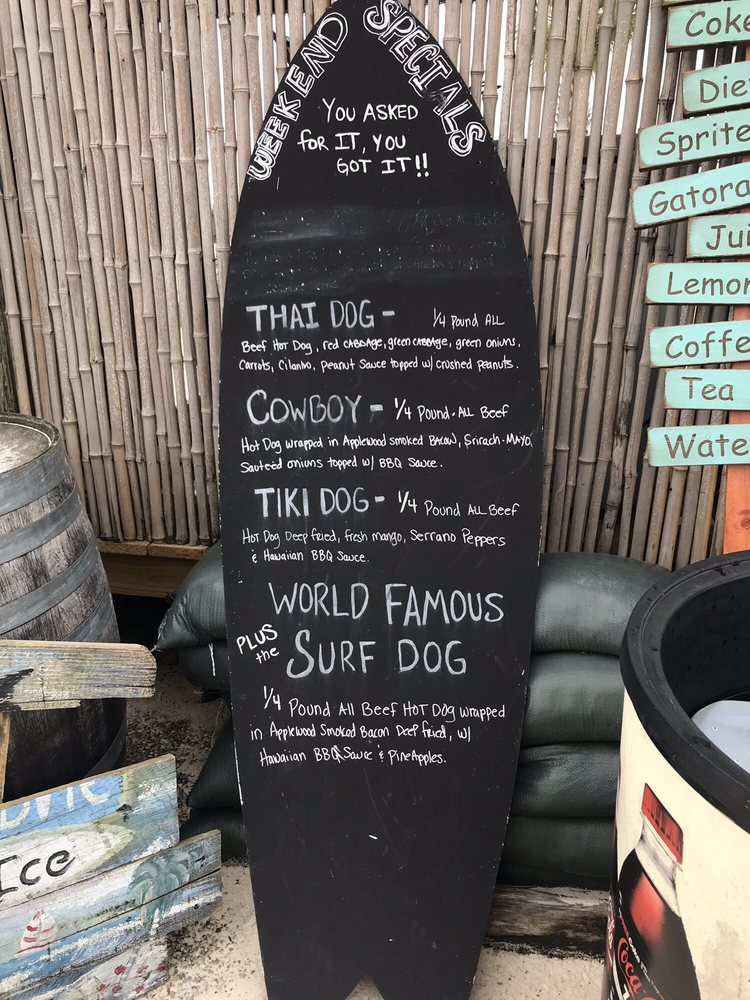 WEEKEND SPECIALS
YOU ASKED
for IT, YOU
GOT IT!!
THAI DOG - 1/4 Pound ALL
Beef Hot Dog, red CABBAGE, green CABBAGE, green onions,
Carrots, Cilantro, Peanut Sauce topped w/ crushed peanuts.
COWBOY - 1/4 Pound. ALL Beef
Hot Dog wrapped in Applewood smoked BACON, Srirach-MAYO,
Sauteed onions topped w/ BBQ Sauce.
TIKI DOG - 1/4 Pound ALL Beef
Hot Dog Deep fried, fresh mango, Serrano Peppers
& Hawaiian BBQ Sauce.
WORLD FAMOUS
PLUS the SURF DOG
1/4 Pound All Beef Hot Dog wrapped
in Applewood Smoked Bacon Deep fried, w/
Hawaiian BBQ Sauce & PineApples.
Coke
Die
Sprite
Gatora
Jui
Lemon
Coffe
Tea
Wate
Ice
Coca